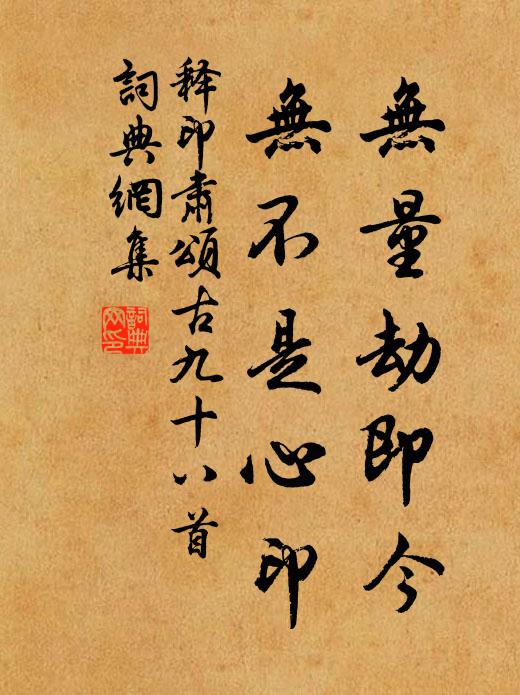 無量劫即今
無不是心印
释印肅頌古九十八首
詞典網集
詞典
网印